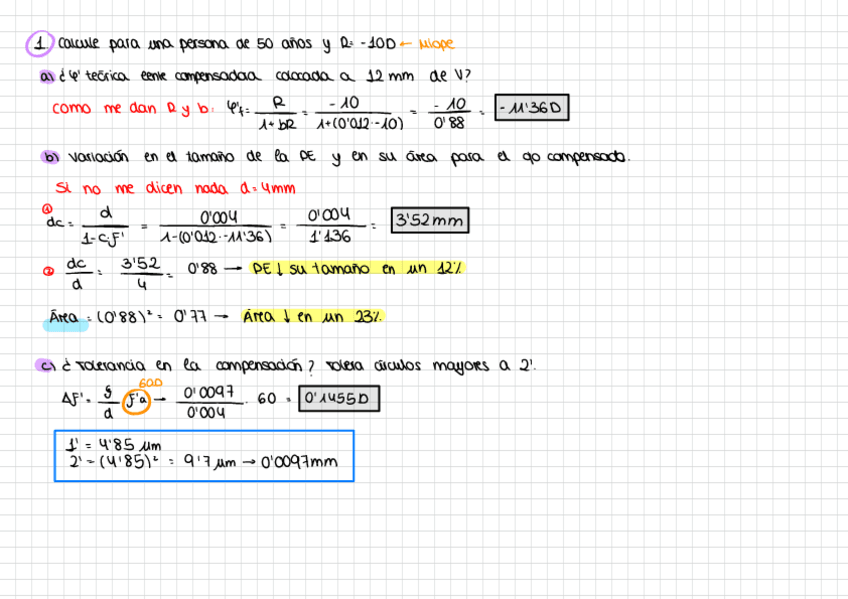 1 Calcule para una persona de 50 años y R= -10D ← Miope
a) ¿φ' teórica lente compensadora colocada a 12mm de V?
como me dan R y b: φ't= R / 1+bR = -10 / 1+(0'012·-10) = -10 / 0'88 = -11'36D
b) Variación en el tamaño de la PE y en su área para el ojo compensado.
Si no me dicen nada d=4mm
① dc= d / 1-c·F' = 0'004 / 1-(0'012·-11'36) = 0'004 / 1'136 = 3'52mm
② dc / d = 3'52 / 4 = 0'88 → PE↓ su tamaño en un 12%
Área = (0'88)² = 0'77 → Área ↓ en un 23%
c) ¿Tolerancia en la compensación? Tolera círculos mayores a 2'.
60D
ΔF'= g / d F'a → 0'0097 / 0'004 · 60 = 0'1455D
1' = 4'85 µm
2' - (4'85)² = 9'7 µm → 0'0097mm